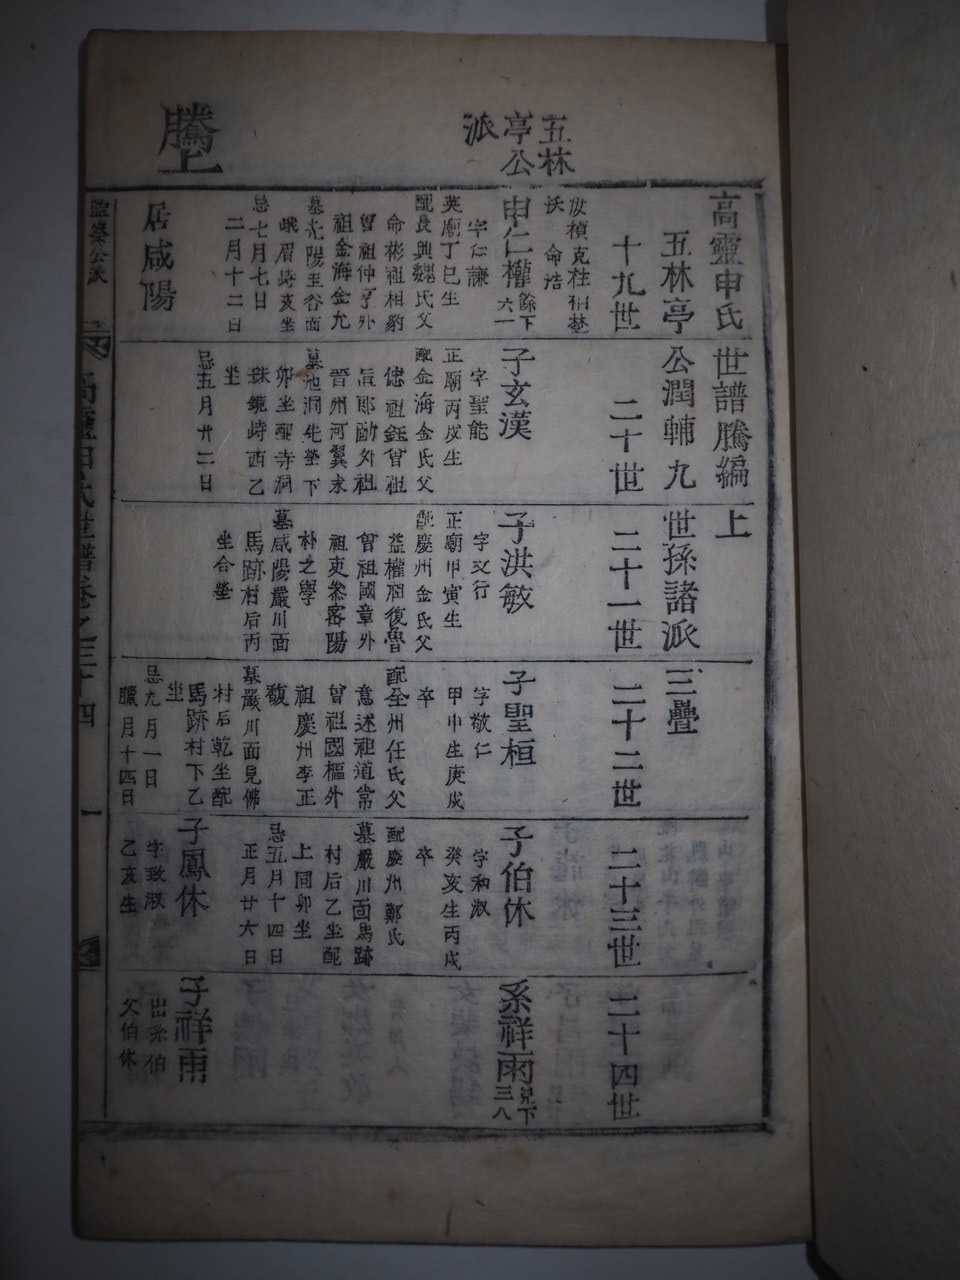 五林
亭公
派
騰上
高靈申氏世譜騰編上
五林亭公潤輔九世孫諸派三疊
十九世
放禎克柱
沃命浩
申仁權
餘下
六一
字仁謙
英廟丁巳生
配長興魏氏父
命彬祖相豹
曾祖仲亨外
祖金海金允
墓光陽玉谷面
峨眉峙亥坐
忌七月七日
二月十二日
居咸陽
二十世
子玄漢
字聖能
正廟丙戌生
配金海金氏父
德祖鈺曾祖
晉州河翼求
墓池洞先塋下
卯坐配寺洞
珠鏡峙酉乙
坐
忌五月廿二日
二十一世
子洪敏
字文行
正廟甲寅生
配慶州金氏父
益權祖復魯
曾祖國章外
祖吏參密陽
朴之學
墓咸陽嚴川面
馬跡村后丙
坐合塋
二十二世
子聖桓
字敬仁
甲申生庚戌
卒
配全州任氏父
意述祖道常
曾祖國樞外
祖慶州李正
馥
墓嚴川面見佛
村后乾坐配
馬跡村下乙
坐
忌九月一日
臘月十四日
二十三世
子伯休
字和淑
癸亥生丙戌
卒
配慶州鄭氏
墓嚴川面馬跡
村后乙坐配
上同卯坐
忌五月十四日
正月廿六日
子鳳休
字致淑
乙亥生
二十四世
系祥雨
見下
三八
子祥雨
出系伯
父伯休
高靈申氏世譜卷之三十四
一